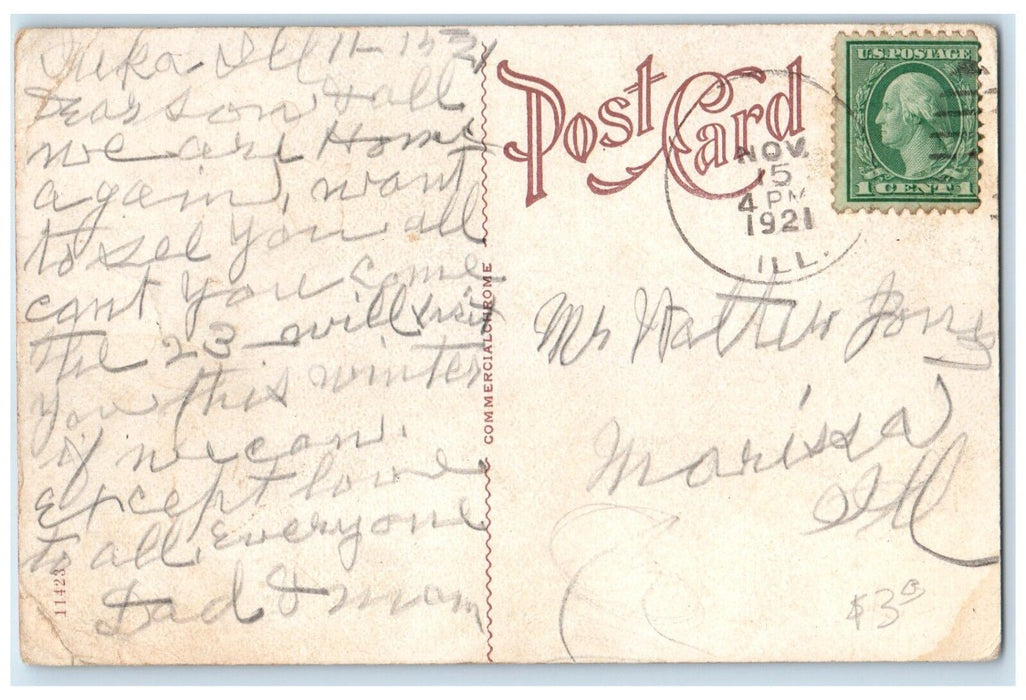 Iuka Ill 11-15 21
Dear son & all
we are Home
again, want
to see you all
cant you come
the 23 will visit
you this winter
if we can.
except love
to all, everyone
Dad & mom
11423
COMMERCIALCHROME
Post Card
NOV
15
4 PM
1921
ILL.
U.S. POSTAGE
1 CENT 1
Mr Walter Jones
Marissa
Ill
$3.